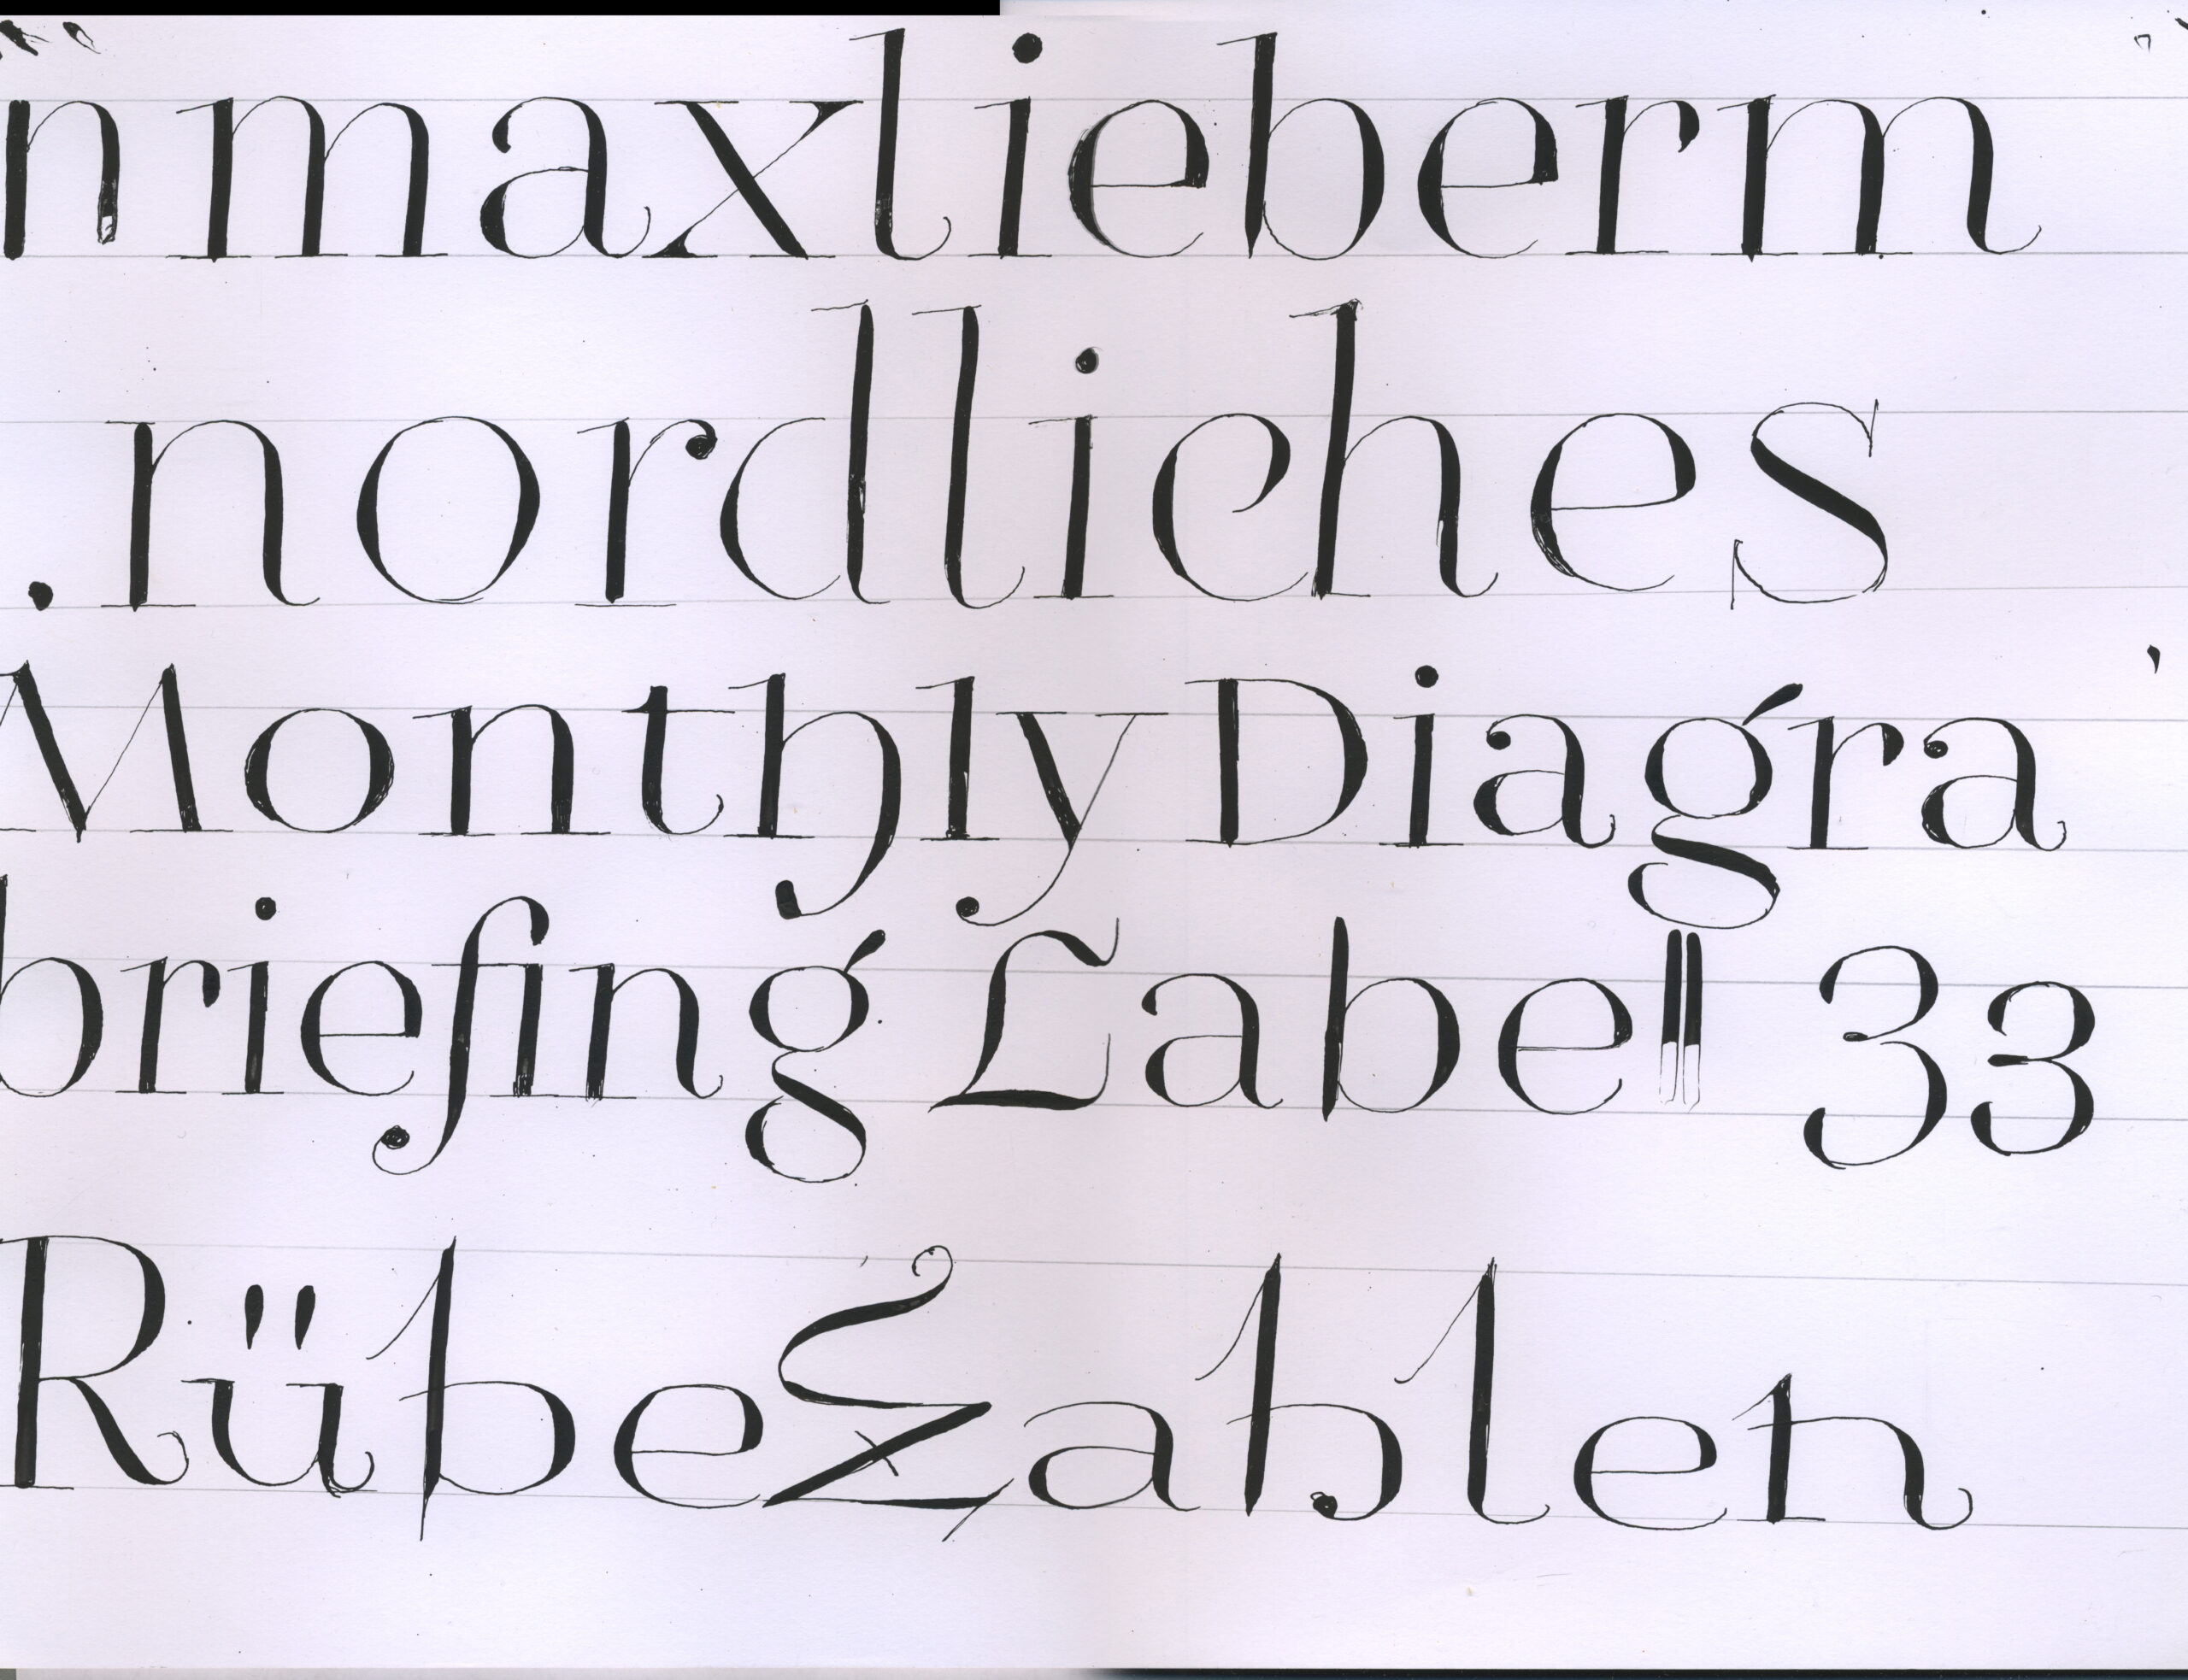 n maxlieberm
. nordliches
Monthly Diagra
briefing Label 33
RübeZahlen